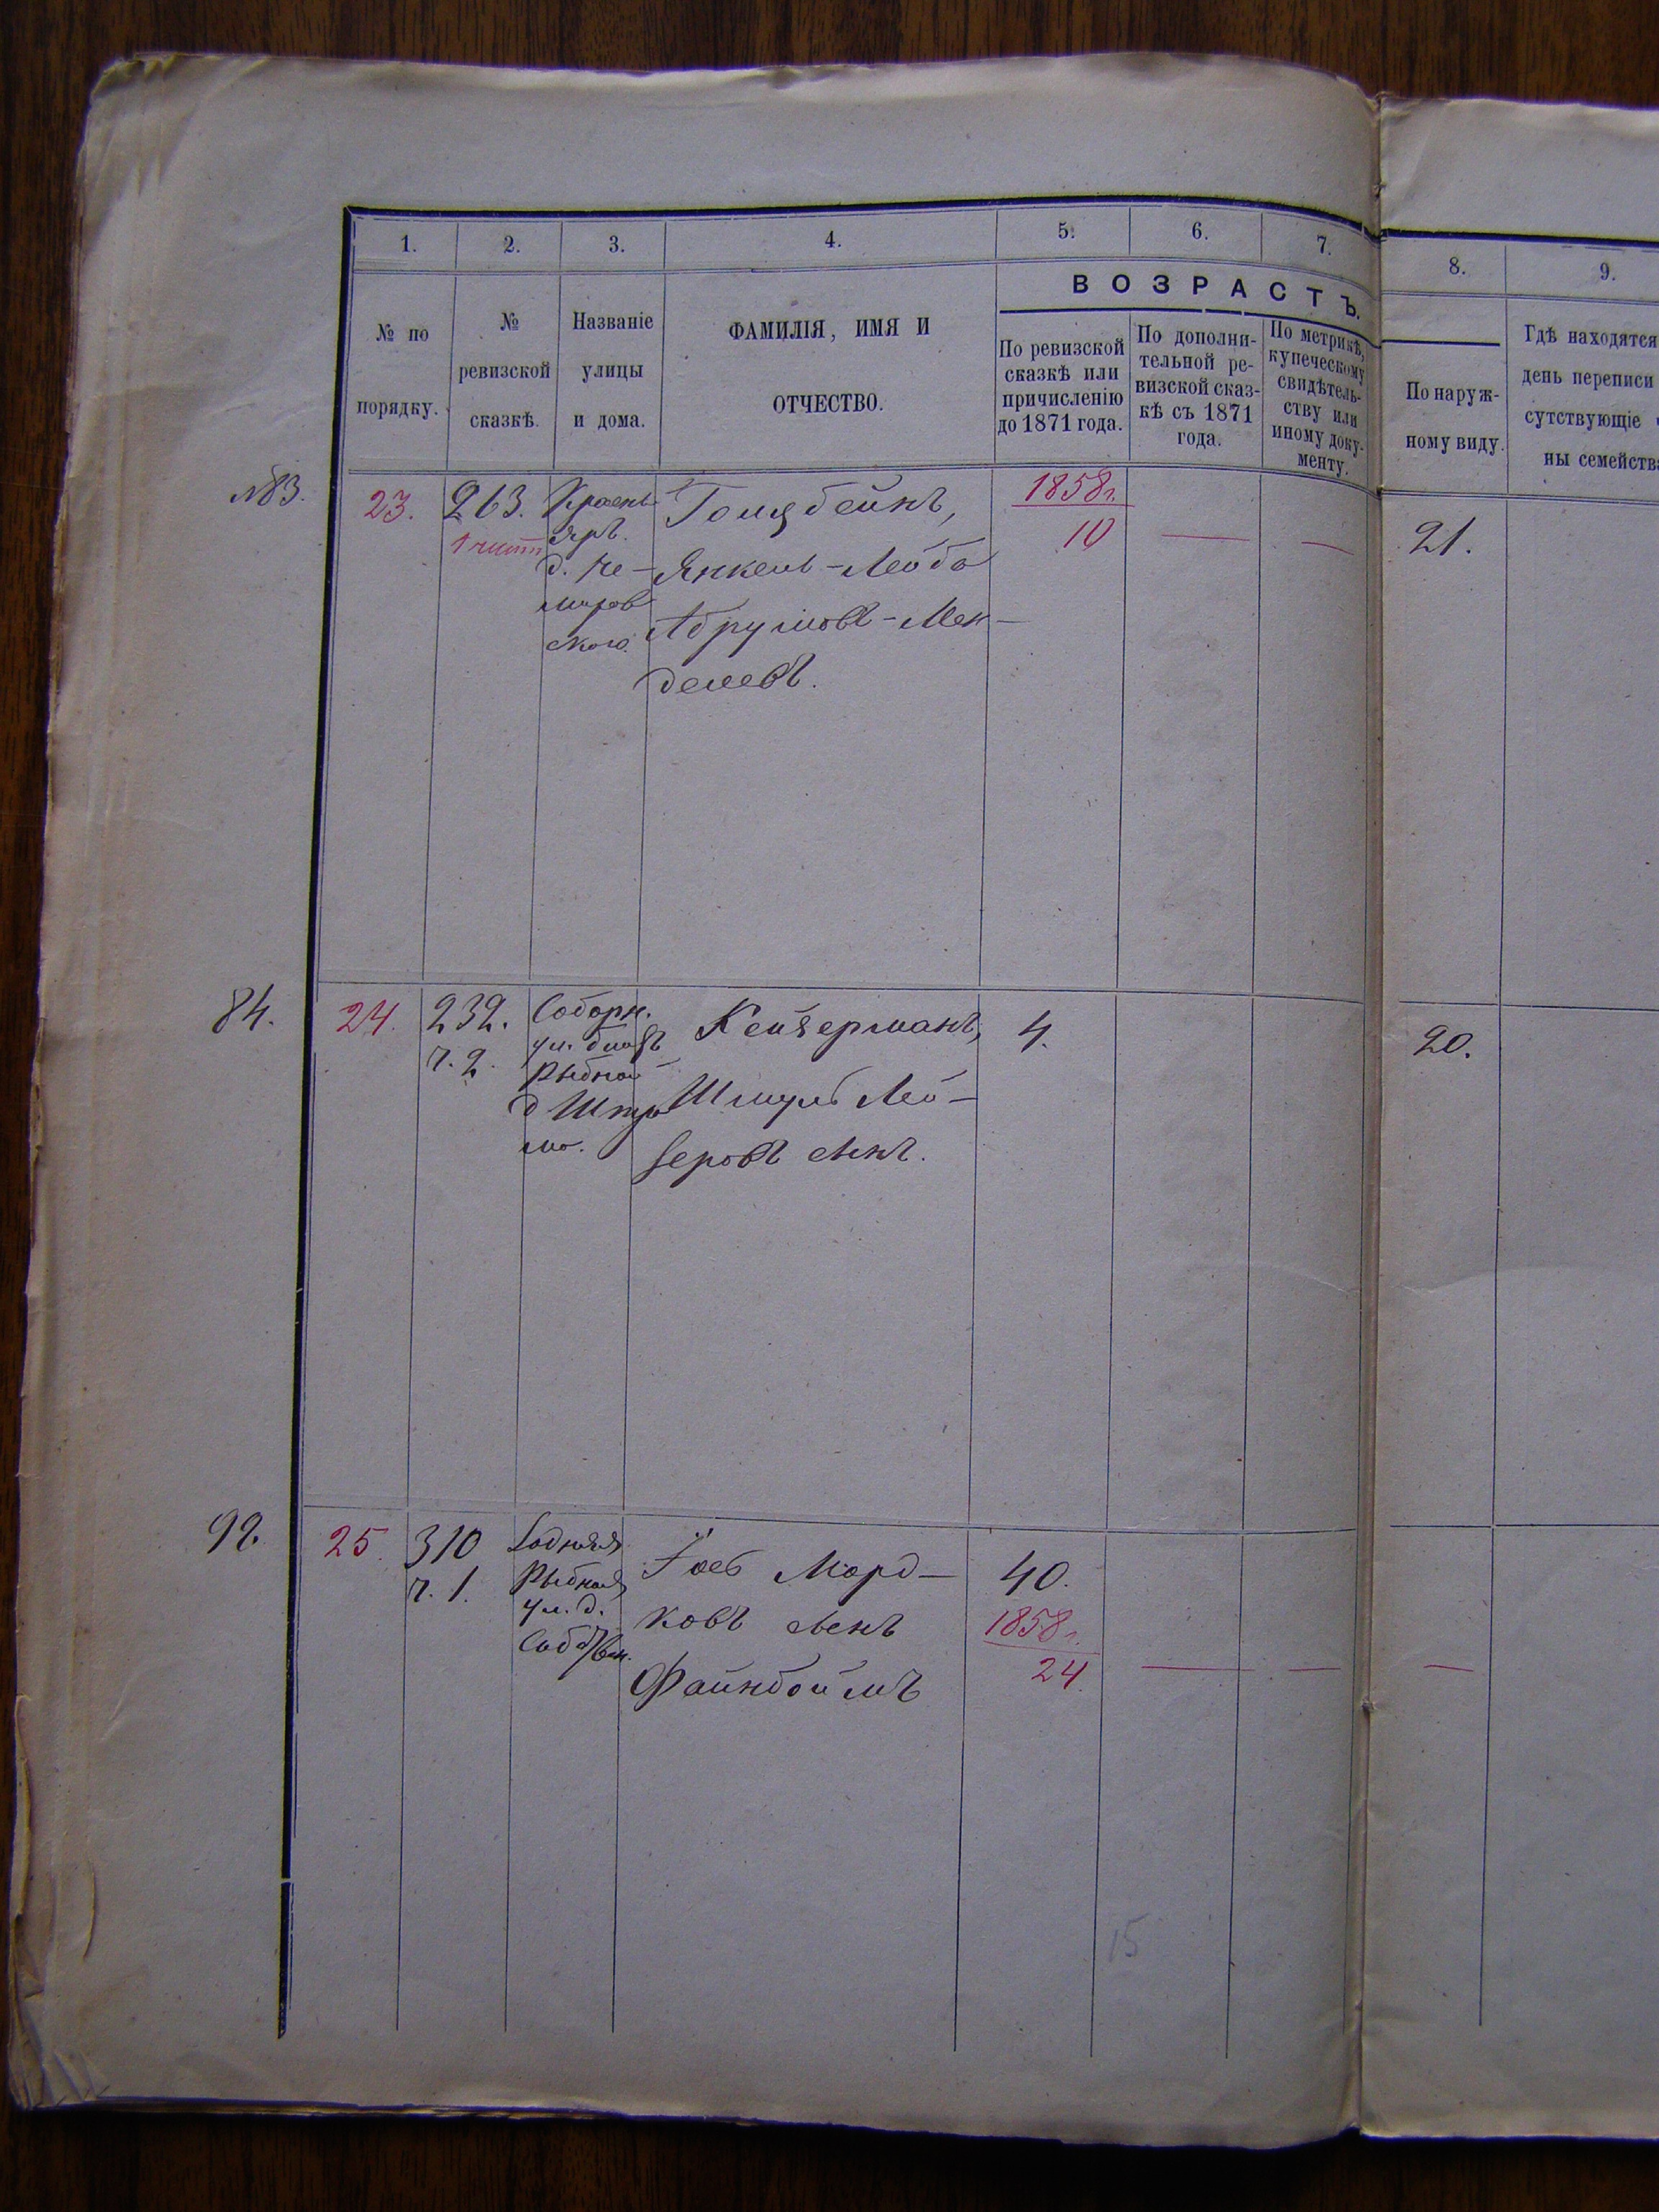 1. 2. 3. 4. 5. 6. 7. 8. 9.
№ по порядку.
№ ревизской сказкѣ.
Названіе улицы и дома.
ФАМИЛІЯ, ИМЯ И ОТЧЕСТВО.
ВОЗРАСТЪ.
По ревизской сказкѣ или причисленію до 1871 года.
По дополнительной ревизской сказкѣ съ 1871 года.
По метрикѣ, купеческому свидѣтельству или иному документу.
По наружному виду.
Гдѣ находятся
день переписи
сутствующіе
ны семейства
№83. 23. 263.
Яръ.
д. Не-
миров
ского.
Янкель-Лейба
Абрумовъ-Мен-
делевъ.
1858г.
10
21.
84. 24. 232.
ч. 2.
Соборн.
ул.
Рыбной
Кейзерманъ,
Шмуль Лей-
зеровъ
4.
20.
92. 25. 310
ч. 1.
Рыбная
ул. д.
Морд-
ковъ
Файнбоймъ
40.
1858г.
24.
15